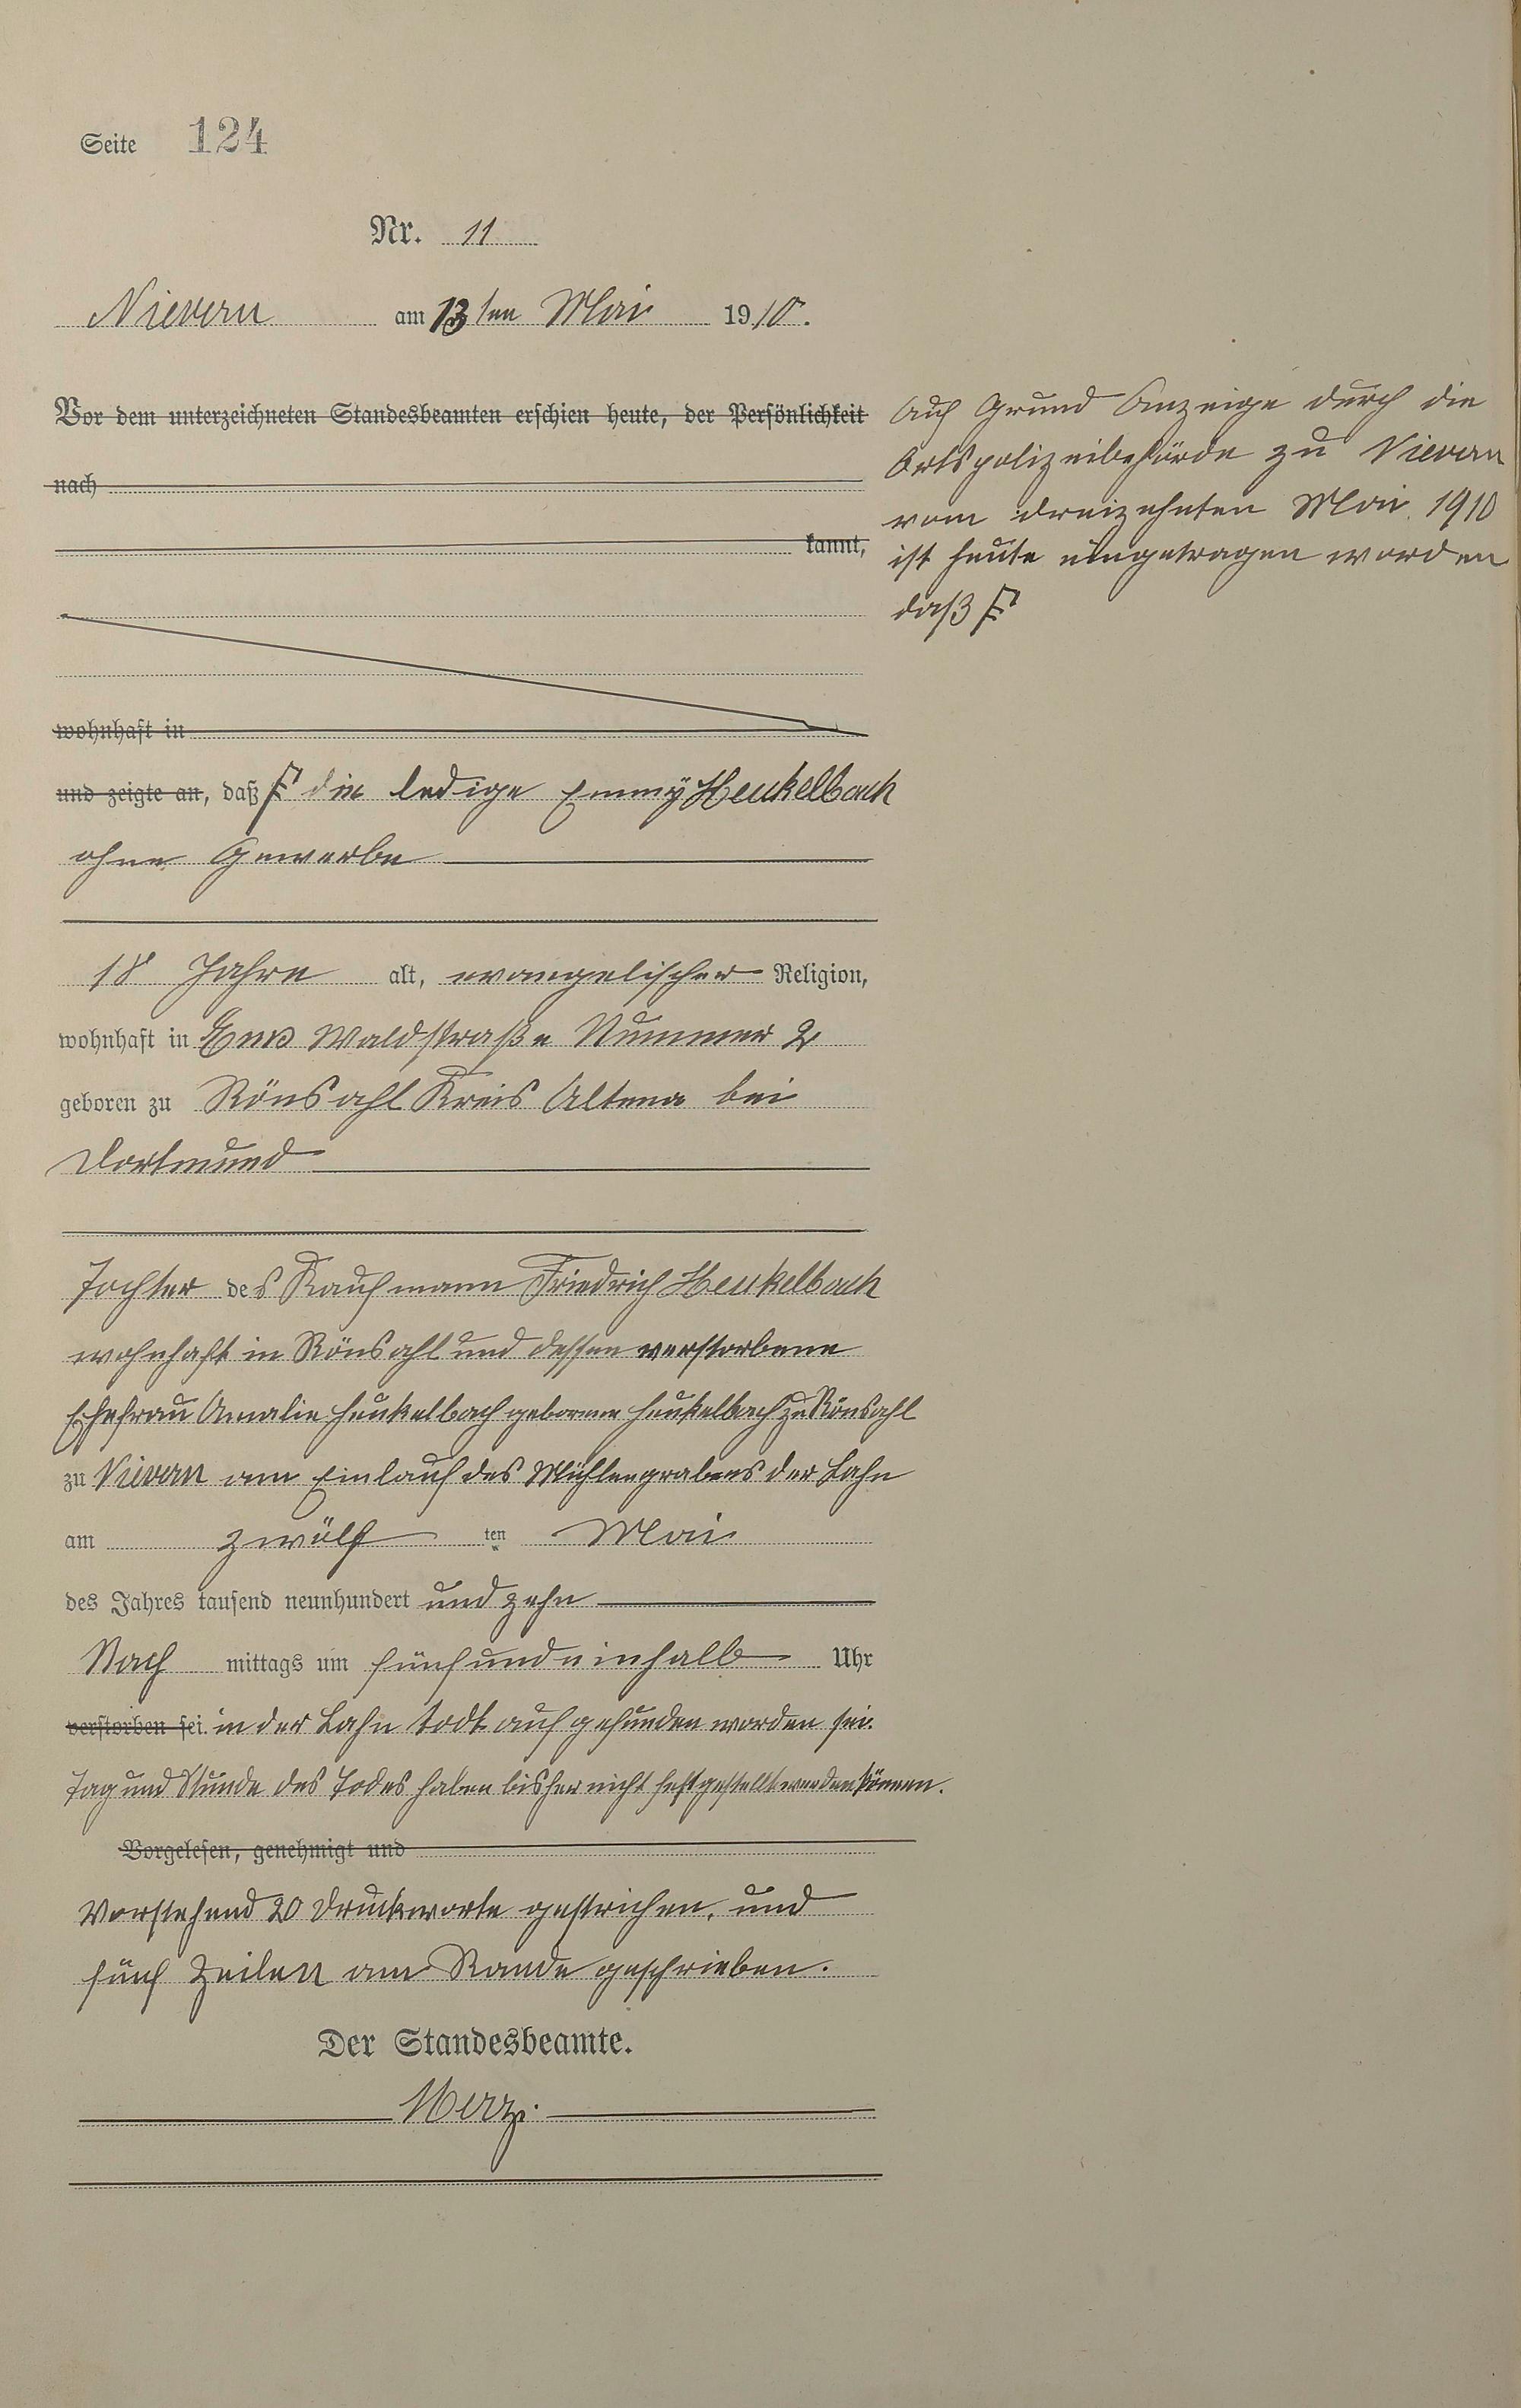 Seite 124
Nr. 11
Nievern am 13ten Mai 1910.
Vor dem unterzeichneten Standesbeamten erschien heute, der Persönlichkeit
nach
kannt,
wohnhaft in
und zeigte an, daß die ledige Emmÿ Heukelbach
ohne Gewerbe
18 Jahre alt, evangelischer Religion,
wohnhaft in Ems Waldstraße Nummer 2
geboren zu Rönsahl Kreis Altena bei
Dortmund
Tochter des Kaufmann Friedrich Heukelbach
wohnhaft in Rönsahl und dessen verstorbene
Ehefrau Amalie Heukelbach geborene Heukelbach zu Rönsahl
zu Nievern am Einlauf des Mühlengrabens der Lahn
am zwölf ten Mai
des Jahres tausend neunhundert und zehn
Nach mittags um fünfundeinhalb Uhr
verstorben sei. in der Lahn todt aufgefunden worden sei.
Tag und Stunde des Todes haben bisher nicht festgestellt werden können.
Vorgelesen, genehmigt und
Vorstehend 20 Druckworte gestrichen, und
fünf Zeilen am Rande geschrieben.
Der Standesbeamte.
Merz.
Auf Grund Anzeige durch die
Ortspolizeibehörde zu Nievern
vom dreizehnten Mai 1910
ist heute eingetragen worden
daß